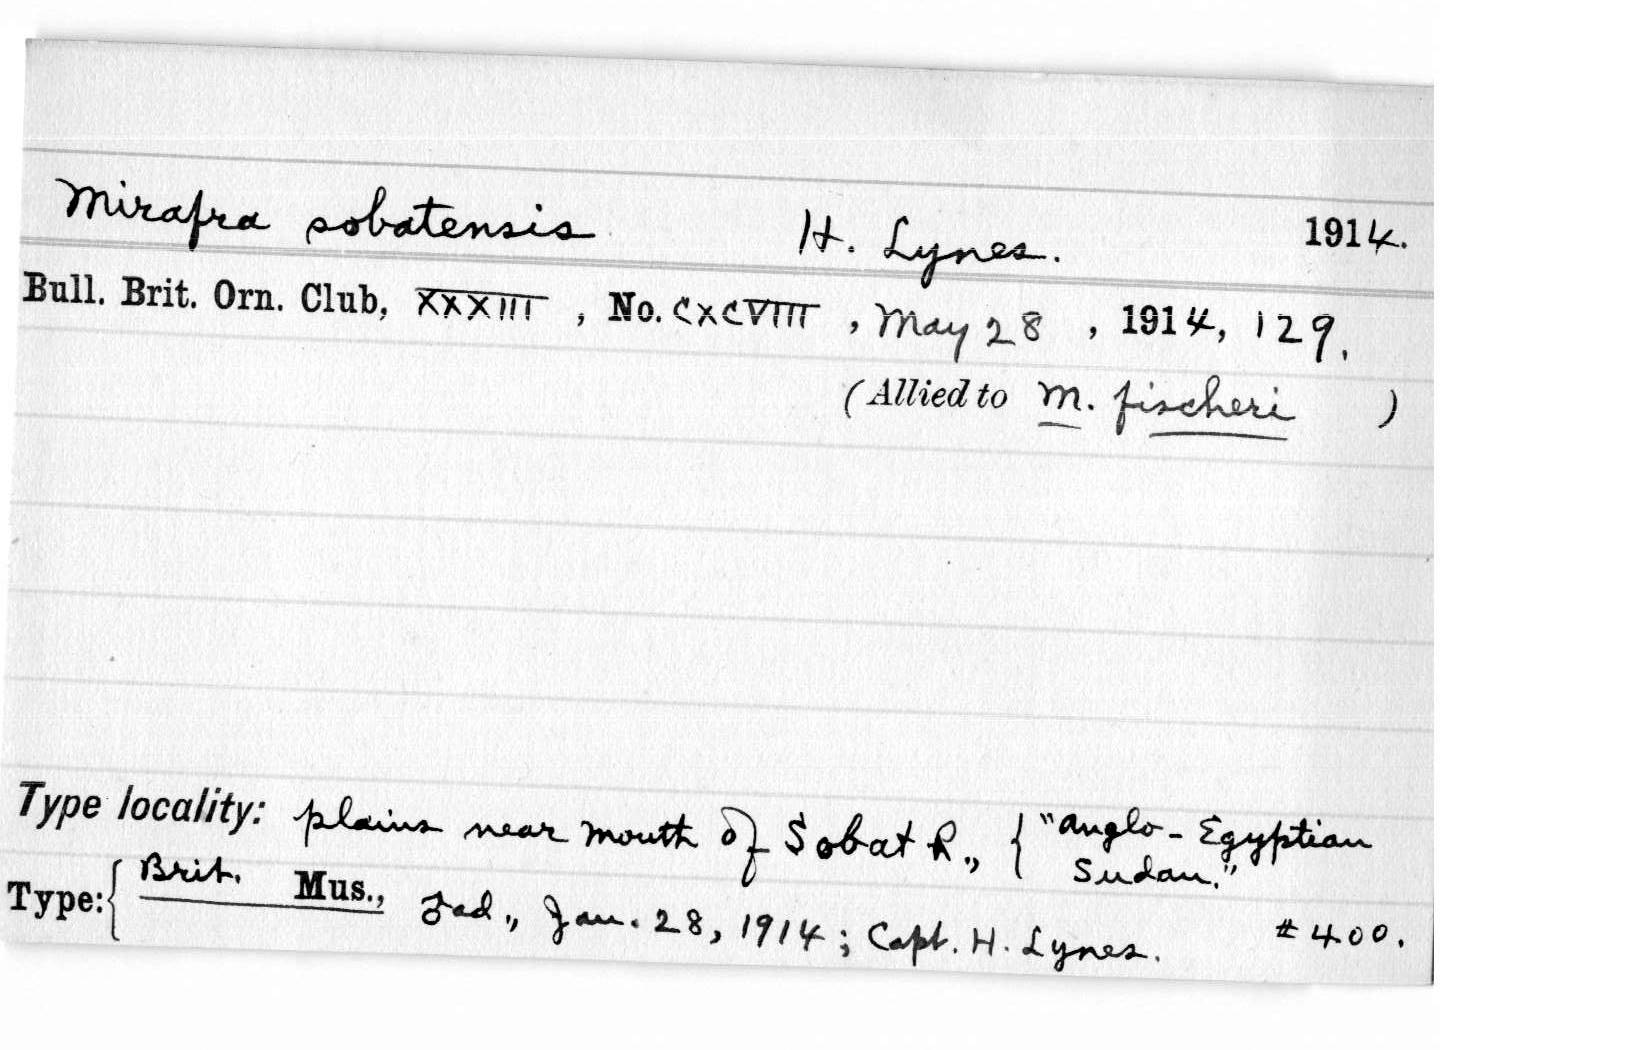 Mirafra sobatensis H. Lynes. 1914.
Bull. Brit. Orn. Club, XXXIII, No. CXCVIII, May 28, 1914, 129.
(Allied to M. fischeri )
Type locality: plains near mouth of Sobat R., { "Anglo-Egyptian
Sudan."
Type: { Brit. Mus., ad., Jan. 28, 1914; Capt. H. Lynes. #400.